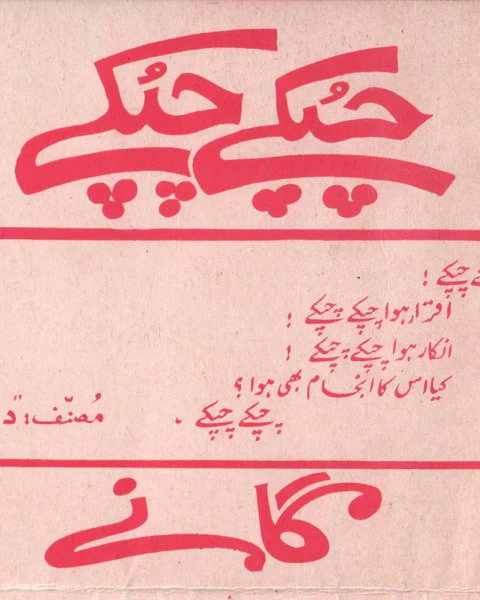 چپکے چپکے
چپکے !
اقرار ہوا، چپکے چپکے !
انکار ہوا چپکے چپکے !
کیا اس کا انجام بھی ہوا ؟
چپکے چپکے .
مُصنّف :
گانے